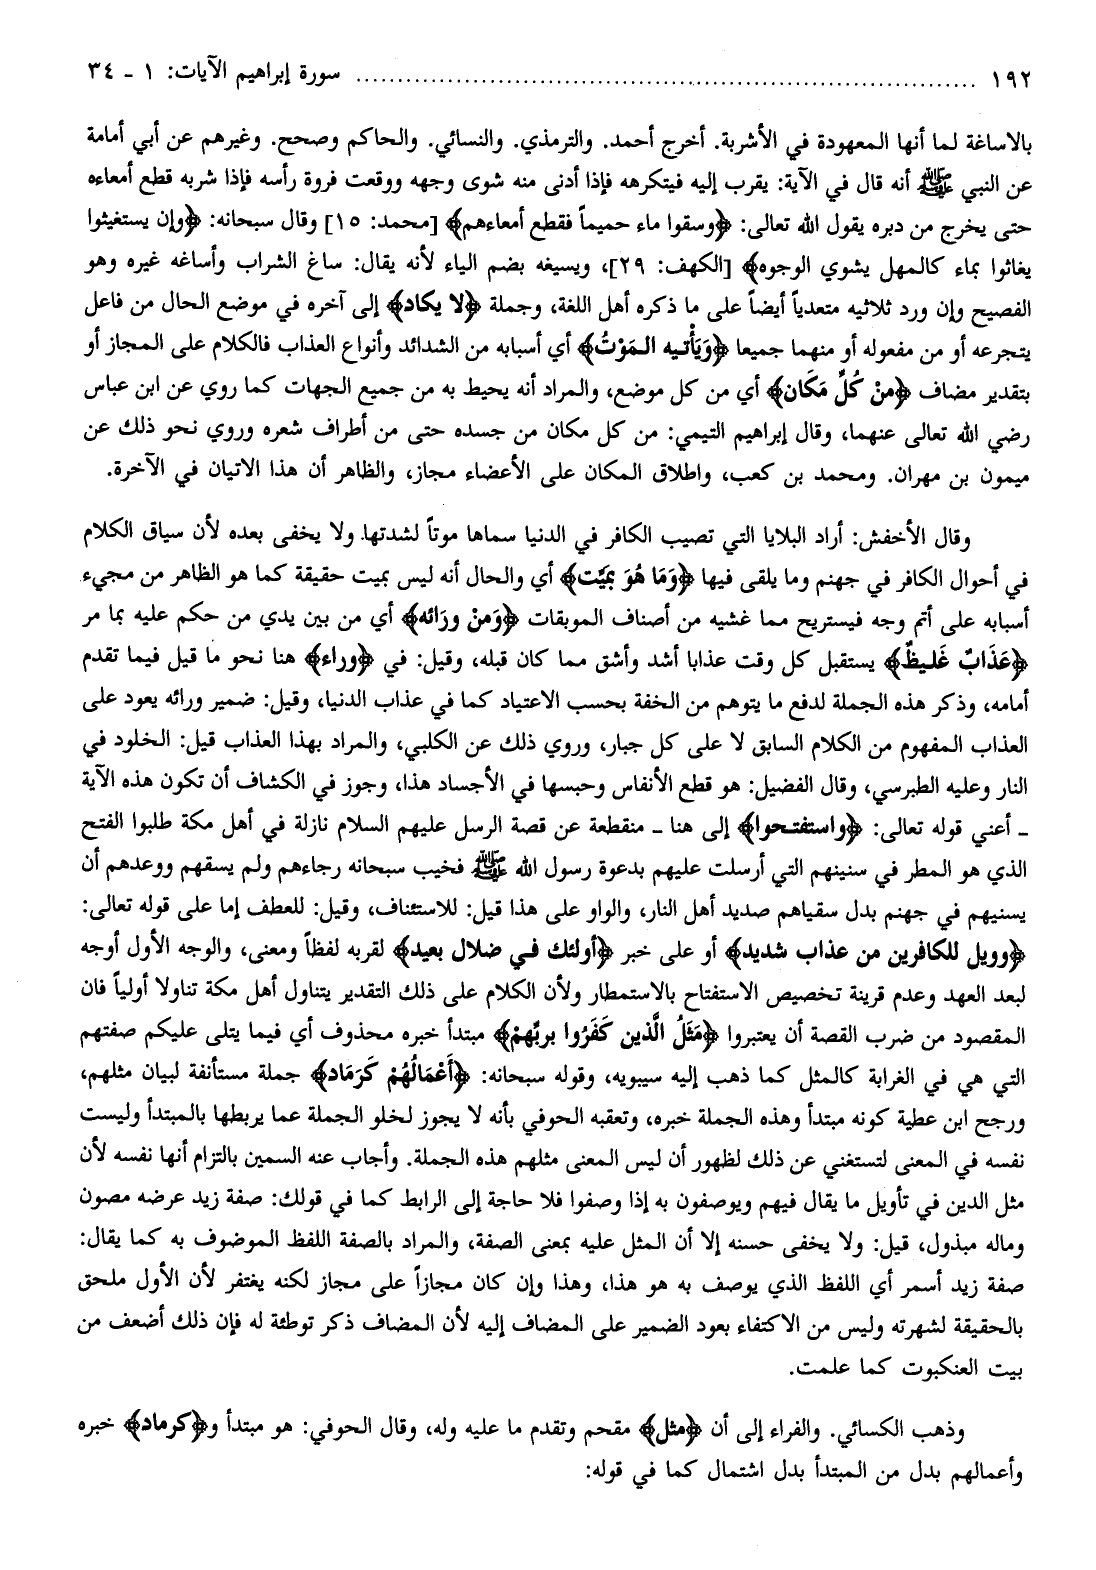 ١٩٢ ........................................................................ سورة إبراهيم الآيات: ١ - ٣٤
بالاساغة لما أنها المعهودة في الأشربة. أخرج أحمد. والترمذي. والنسائي. والحاكم وصحح. وغيرهم عن أبي أمامة
عن النبي ﷺ أنه قال في الآية: يقرب إليه فيتكرهه فإذا أدنى منه شوى وجهه ووقعت فروة رأسه فإذا شربه قطع أمعاءه
حتى يخرج من دبره يقول الله تعالى: ﴿وسقوا ماء حميماً فقطع أمعاءهم﴾ [محمد: ١٥] وقال سبحانه: ﴿وإن يستغيثوا
يغاثوا بماء كالمهل يشوي الوجوه﴾ [الكهف: ٢٩]، ويسيغه بضم الياء لأنه يقال: ساغ الشراب وأساغه غيره وهو
الفصيح وإن ورد ثلاثيه متعدياً أيضاً على ما ذكره أهل اللغة، وجملة ﴿لا يكاد﴾ إلى آخره في موضع الحال من فاعل
يتجرعه أو من مفعوله أو منهما جميعا ﴿وَيَأْتيه المَوْتُ﴾ أي أسبابه من الشدائد وأنواع العذاب فالكلام على المجاز أو
بتقدير مضاف ﴿منْ كُلِّ مَكَان﴾ أي من كل موضع، والمراد أنه يحيط به من جميع الجهات كما روي عن ابن عباس
رضي الله تعالى عنهما، وقال إبراهيم التيمي: من كل مكان من جسده حتى من أطراف شعره وروي نحو ذلك عن
ميمون بن مهران. ومحمد بن كعب، واطلاق المكان على الأعضاء مجاز، والظاهر أن هذا الاتيان في الآخرة.
وقال الأخفش: أراد البلايا التي تصيب الكافر في الدنيا سماها موتاً لشدتها. ولا يخفى بعده لأن سياق الكلام
في أحوال الكافر في جهنم وما يلقى فيها ﴿وَمَا هُوَ بمَيِّت﴾ أي والحال أنه ليس بميت حقيقة كما هو الظاهر من مجيء
أسبابه على أتم وجه فيستريح مما غشيه من أصناف الموبقات ﴿وَمنْ ورَائه﴾ أي من بين يدي من حكم عليه بما مر
﴿عَذَابٌ غَليظٌ﴾ يستقبل كل وقت عذابا أشد وأشق مما كان قبله، وقيل: في ﴿وراء﴾ هنا نحو ما قيل فيما تقدم
أمامه، وذكر هذه الجملة لدفع ما يتوهم من الخفة بحسب الاعتياد كما في عذاب الدنيا، وقيل: ضمير ورائه يعود على
العذاب المفهوم من الكلام السابق لا على كل جبار، وروي ذلك عن الكلبي، والمراد بهذا العذاب قيل: الخلود في
النار وعليه الطبرسي، وقال الفضيل: هو قطع الأنفاس وحبسها في الأجساد هذا، وجوز في الكشاف أن تكون هذه الآية
ـ أعني قوله تعالى: ﴿واستفتحوا﴾ إلى هنا ـ منقطعة عن قصة الرسل عليهم السلام نازلة في أهل مكة طلبوا الفتح
الذي هو المطر في سنينهم التي أرسلت عليهم بدعوة رسول الله ﷺ فخيب سبحانه رجاءهم ولم يسقهم ووعدهم أن
يسنيهم في جهنم بدل سقياهم صديد أهل النار، والواو على هذا قيل: للاستئناف، وقيل: للعطف إما على قوله تعالى:
﴿وويل للكافرين من عذاب شديد﴾ أو على خبر ﴿أولئك في ضلال بعيد﴾ لقربه لفظاً ومعنى، والوجه الأول أوجه
لبعد العهد وعدم قرينة تخصيص الاستفتاح بالاستمطار ولأن الكلام على ذلك التقدير يتناول أهل مكة تناولا أولياً فان
المقصود من ضرب القصة أن يعتبروا ﴿مَثَلُ الَّذين كَفَرُوا بربِّهمْ﴾ مبتدأ خبره محذوف أي فيما يتلى عليكم صفتهم
التي هي في الغرابة كالمثل كما ذهب إليه سيبويه، وقوله سبحانه: ﴿أَعْمَالُهُمْ كَرَمَاد﴾ جملة مستأنفة لبيان مثلهم،
ورجح ابن عطية كونه مبتدأ وهذه الجملة خبره، وتعقبه الحوفي بأنه لا يجوز لخلو الجملة عما يربطها بالمبتدأ وليست
نفسه في المعنى لتستغني عن ذلك لظهور أن ليس المعنى مثلهم هذه الجملة. وأجاب عنه السمين بالتزام أنها نفسه لأن
مثل الدين في تأويل ما يقال فيهم ويوصفون به إذا وصفوا فلا حاجة إلى الرابط كما في قولك: صفة زيد عرضه مصون
وماله مبذول، قيل: ولا يخفى حسنه إلا أن المثل عليه بمعنى الصفة، والمراد بالصفة اللفظ الموضوف به كما يقال:
صفة زيد أسمر أي اللفظ الذي يوصف به هو هذا، وهذا وإن كان مجازاً على مجاز لكنه يغتفر لأن الأول ملحق
بالحقيقة لشهرته وليس من الاكتفاء بعود الضمير على المضاف إليه لأن المضاف ذكر توطئة له فإن ذلك أضعف من
بيت العنكبوت كما علمت.
وذهب الكسائي. والفراء إلى أن ﴿مثل﴾ مقحم وتقدم ما عليه وله، وقال الحوفي: هو مبتدأ و﴿كرماد﴾ خبره
وأعمالهم بدل من المبتدأ بدل اشتمال كما في قوله: